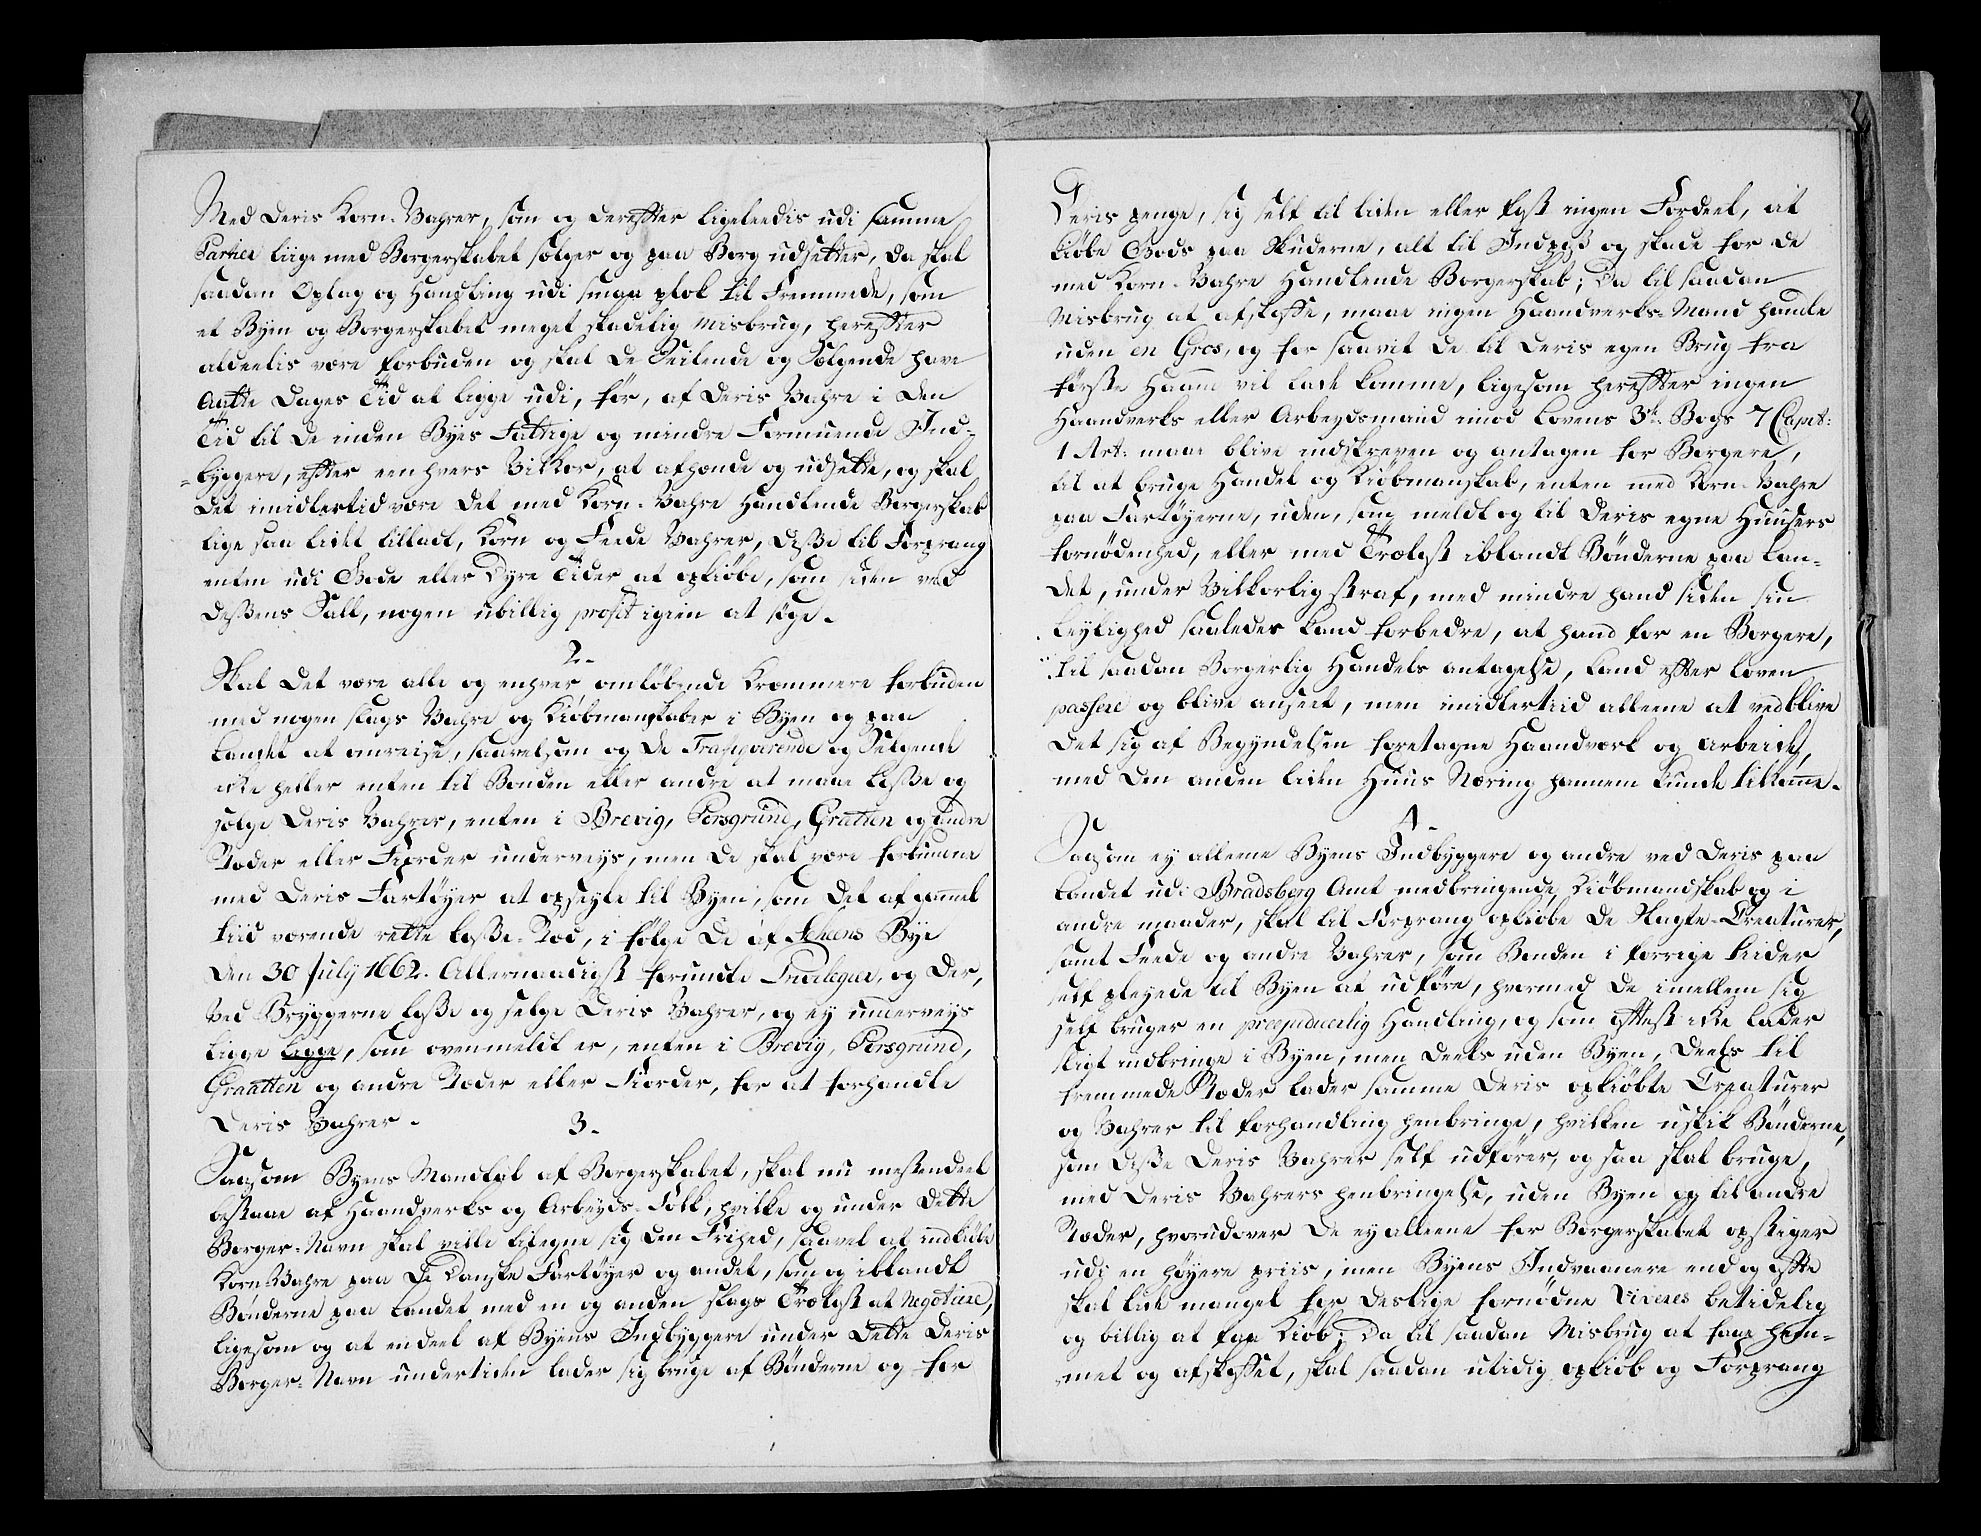 Med deris Korn-Vahrer, som og derefter ligeledis udi samme
Partier liige med Borgerskabet sælger og paa Borg udsetter, da skal
saadan Oplag og Handling udi smaa plok til Fremmede, som
et Byen og Borgerskabet meget skadelig Misbrug, herefter
aldeelis være forbuden og skal de Seilende og Sælgende have
Aatte Dages Tid at ligge udi, for, af deris Vahre i den
Tid til de inden Byes Fattige og mindre Formuende Ind-
byggere, efter eenhvers Vilkor, at afhænde og udsette, og skal
det imidlertid være det med Korn-Vahre Handlende Borgerskab
lige saa lidet tilladt, Korn og Feede Vahrer, disse til Forprang
enten udi Gode eller Dyre Tider at opkiöbe, som siden ved
dessens Sall, nogen ubillig profit igien at søge.
2.
Skal det være alle og enhver omløbende Kræmmere forbuden
med nogen slags Vahre og Kiöbmanskaber i Byen og paa
Landet at omreise, saavelsom og de Trafiquerende og Selgende
ikke heller enten til Bonden eller andre at maae losse og
sælge deris Vahrer, enten i Brevig, Porsgrund, Gratten og andre
Stæder eller Fiorder underveys, men de skal være forbundne
med deris Fartøyer at opseyle til Byen, som det af gammel
tiid værende rette Losse-Stæd, i følge de af Scheens Bye
den 30 July 1662. Allernaadigst forundte Privilegier, og der,
ved Bryggerne losse og selge deris Vahrer, og ey underveys
ligge ligge, som ovenmeldt er, enten i Brevig, Porsgrund,
Graatten og andre Stæder eller Fiorder, for at forhandle
deris Vahrer.
3.
Saasom Byens Mandtal af Borgerskabet, skal nu mestendeel
bestaae af Haandverks og Arbeyds-Folk, hvilke og under dette
Borger-Navn skal ville tilegne sig den Frihed, saavel at indkiöbe
Korn-Vahre paa de Danske Fartøyer og andet, som og iblandt
Bönderne paa Landet med en og anden slags Trælast at Negotiere,
ligesom og at endeel af Byens Indbyggere under dette deris
Borger-Navn undertiden lader sig bruge af Bönderne og for
deris penge, sig self til liden eller fast ingen Fordeel, at
kiöbe Gods paa Skuderne, alt til Indpas og skade for de
med Korn-Vahre Handlende Borgerskab; Da til saadan
Misbrug at afskaffe, maae ingen Haandverks-Mand handle
uden en Gros, og for saavit de til deris egen Brug fra
förste Haand vil lade komme, ligesom herefter ingen
Haandverks eller Arbeydsmand imod Lovens 3die Bogs 7 Capit:
1 Art: maae blive indskreven og antagen for Borgere,
til at bruge Handel og Kiöbmanskab, enten med Korn-Vahre
paa Fartøyerne, uden, som meldt og til deris egne Huusers
fornödenhed, eller med Trælast iblandt Bönderne paa Lan-
det, under Vilkorlig straf, med mindre hand siden sin
Leylighed saaledes kand forbedre, at hand for en Borgere,
til saadan Borgerlig Handels antagelse, kand efter Loven
passere og blive anseet, men imidlertiid alleene at vedblive
det sig af Begyndelsen foretagne Haandværk og Arbeide,
med den anden liden Huus Næring hannem kunde tilkomme.
4.
Saasom ey alleene Byens Indbyggere og andre ved deris paa
Landet udi Bradsberg Amt medbringende Kiöbmandskab og i
andre maader, skal til Forprang opkiöbe de Slagte-Creaturer,
samt Feede og andre Vahrer, som Bonden i forrige tiider
self pleyede til Byen at udføre, hvormed de imellem sig
self bruger en præjudicerlig Handling, og som oftest ikke lader
sligt indbringe i Byen, men deels uden Byen, deels til
fremmede Stæder lader samme deris opkiöbte Creaturer
og Vahrer til forhandling henbringe, hvilken uskik Bönderne,
som disse deris Vahrer self udfører, og saa skal bruge,
med deris Vahrers henbringelse, uden Byen og til andre
Stæder, hvorudover de ey alleene for Borgerskabet opstiger
udi en höyere priis, men Byens Indvaanere end og ofte
skal lide mangel for deslige fornödne Vivres betidelig
og billig at faae Kiöb; Da til saadan Misbrug at faae hem-
met og afskaffet, skal saadan utidig opkiöb og Forprang